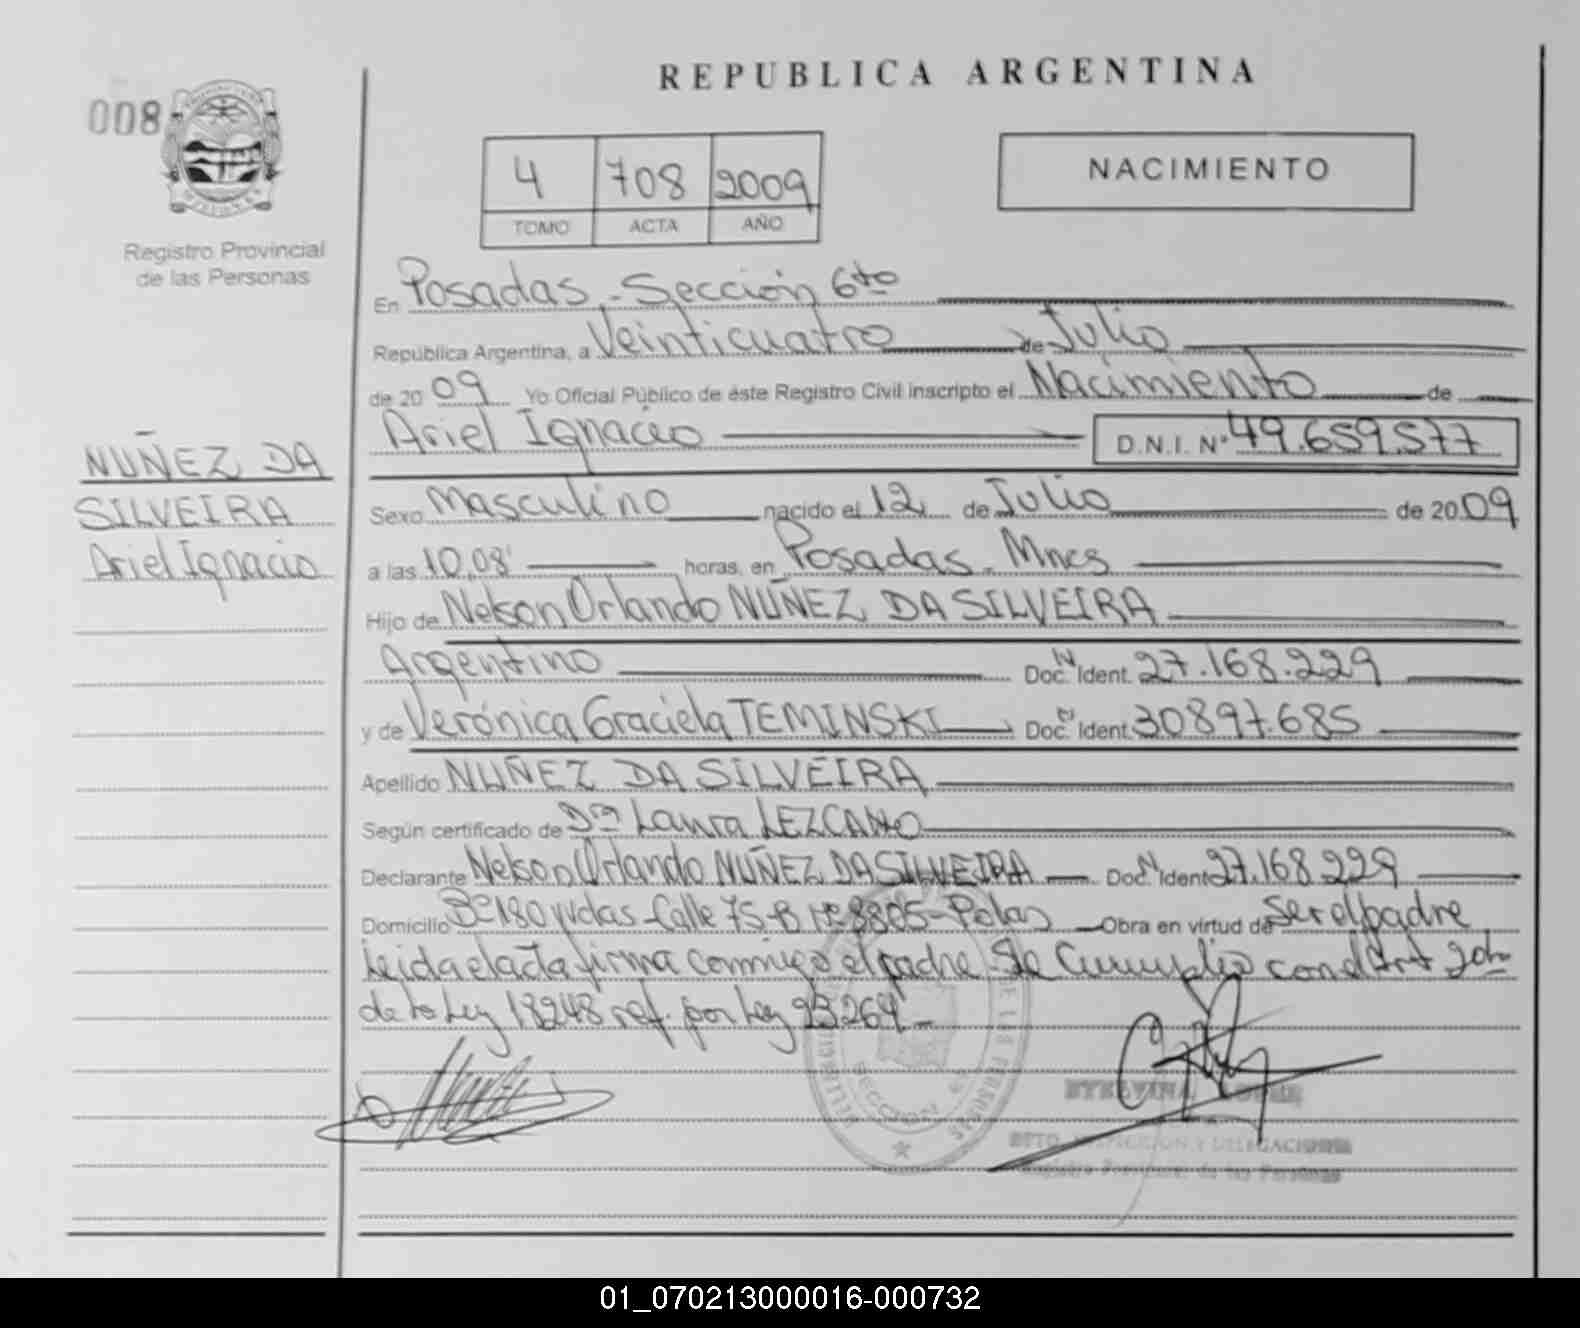 REPUBLICA ARGENTINA
008
4 708 2009
TOMO ACTA AÑO
NACIMIENTO
Registro Provincial
de las Personas
NUÑEZ DA
SILVEIRA
Ariel Ignacio
En Posadas - Sección 6to
República Argentina, a Veinticuatro de Julio
de 2009 Yo Oficial Público de éste Registro Civil inscripto el Nacimiento de
Ariel Ignacio D.N.I. Nº 49.659.577
Sexo Masculino nacido el 12 de Julio de 2009
a las 10,08' horas, en Posadas - Mnes
Hijo de Nelson Orlando NUÑEZ DA SILVEIRA
Argentino Doc. N Ident. 27.168.229
y de Verónica Graciela TEMINSKI Doc. N Ident. 30897.685
Apellido NUÑEZ DA SILVEIRA
Según certificado de Dra Laura LEZCANO
Declarante Nelson Orlando NUÑEZ DA SILVEIRA Doc. N Ident 27.168.229
Domicilio Bº 180 Vvdas - Calle 75-B Nº 8805 - Pdas Obra en virtud de ser el padre
Leida el acta firma conmigo el padre - Se Cumplio con el Art 2do
de la Ley 18248 ref. por Ley 23264 -
DE LAS PERSONAS
SECCION 6ª
DPTO. INSPECCION Y DELEGACIONES
Registro Provincial de las Personas
01_070213000016-000732